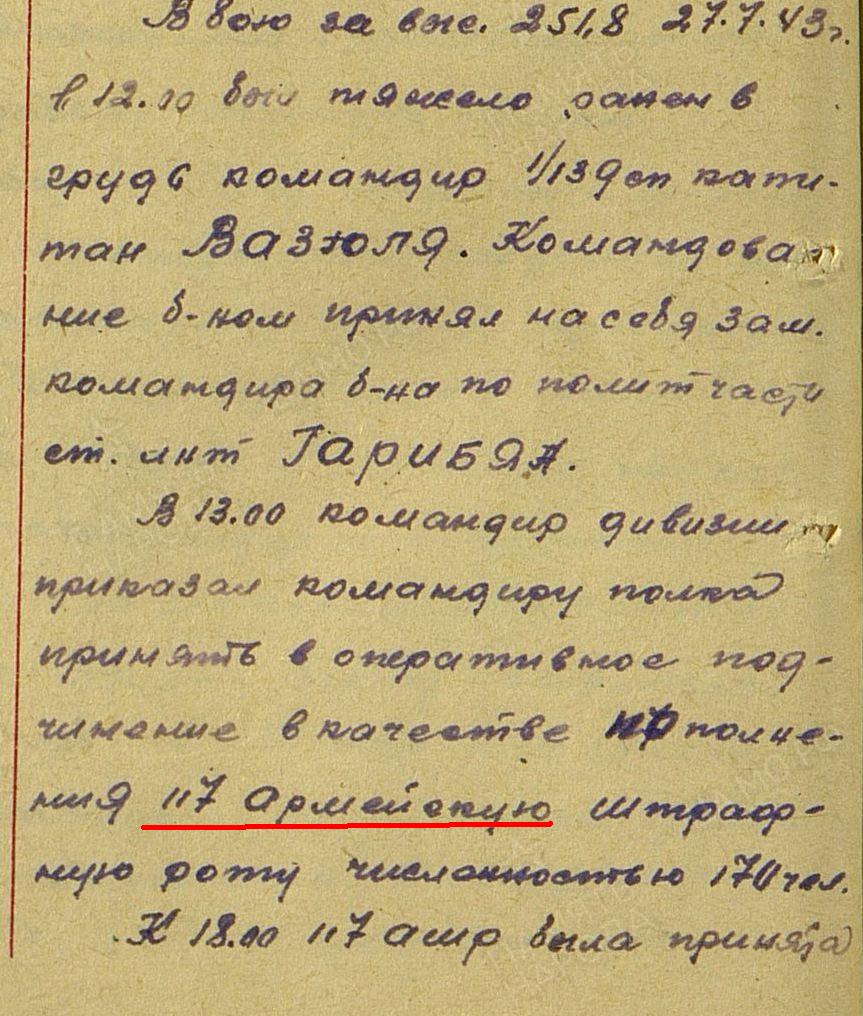 В бою за выс. 251,8 27.7.43г.
в 12.00 был тяжело ранен в
грудь командир 1/139 сп капи-
тан Вазюля. Командова-
ние б-ном принял на себя зам.
командира б-на по политчасти
ст. лнт ГАРИБЯН.
В 13.00 командир дивизии
приказал командиру полка
принять в оперативное под-
чинение в качестве пополне-
ния 117 Армейскую штраф-
ную роту численностью 170 чел.
К 18.00 117 ашр была принята